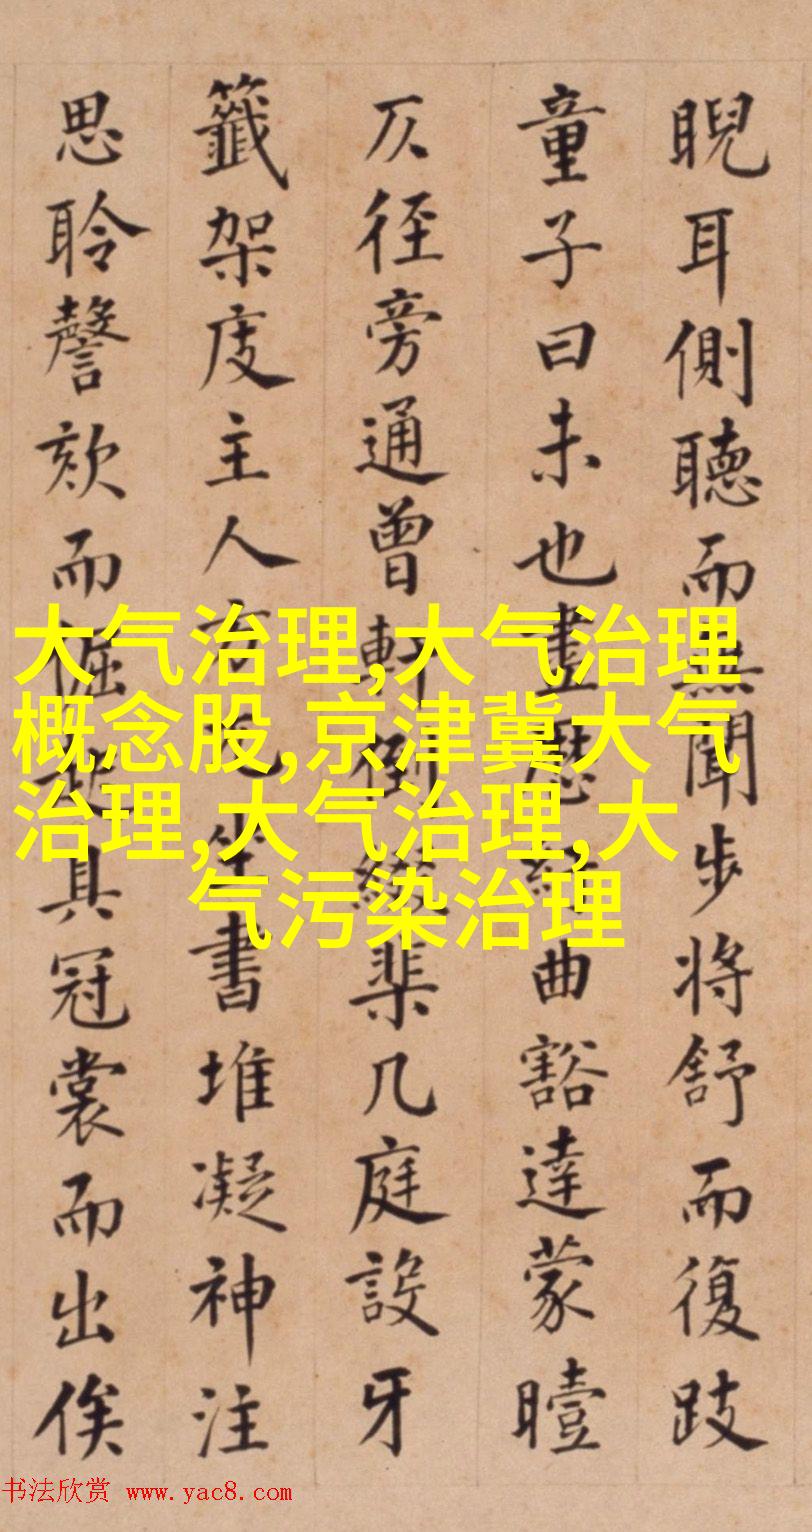 睨耳側聽而無聞步將舒而復跂
童子曰未也歷曲豁達蒙曀
仄徑旁通曾軒倒綴棐几庭設牙
籤架庋主人方兀坐書堆凝神注
思聆謦欬而倔起具冠裳而出俟
大气治理,大气治理
概念股,京津冀大气
治理,大气治理,大
气污染治理
书法欣赏 www.yac8.com